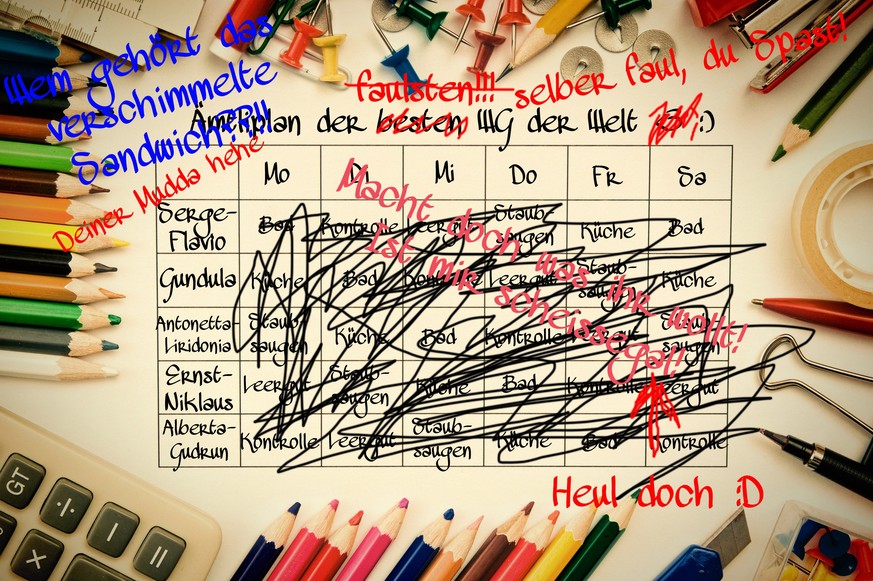 Wem gehört das
verschimmelte
Sandwich???!!
Deiner Mudda hehe
faulsten!!! selber faul, du Spast!
Ämtliplan der besten WG der Welt :)
Mo Di Mi Do Fr Sa
Serge-Flavio Bad Kontrolle Leergut Staub-saugen Küche Bad
Gundula Küche Bad Kontrolle Leergut Staub-saugen Küche
Antonetta-Liridonia Staub-saugen Küche Bad Kontrolle Leergut Staub-saugen
Ernst-Niklaus Leergut Staub-saugen Küche Bad Kontrolle Leergut
Alberta-Gudrun Kontrolle Leergut Staub-saugen Küche Bad Kontrolle
Macht doch was ihr wollt!
Ist mir scheissegal!!
Heul doch :D
GT
÷